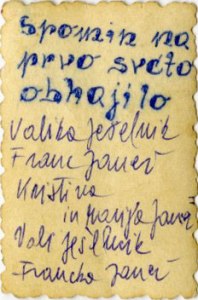 spomin na
prvo sveto
obhajilo
Valika Ješelnik
Franc Janeš
Kristina
in Marija Janeš
Volk Ješelnik
Francka Janeš